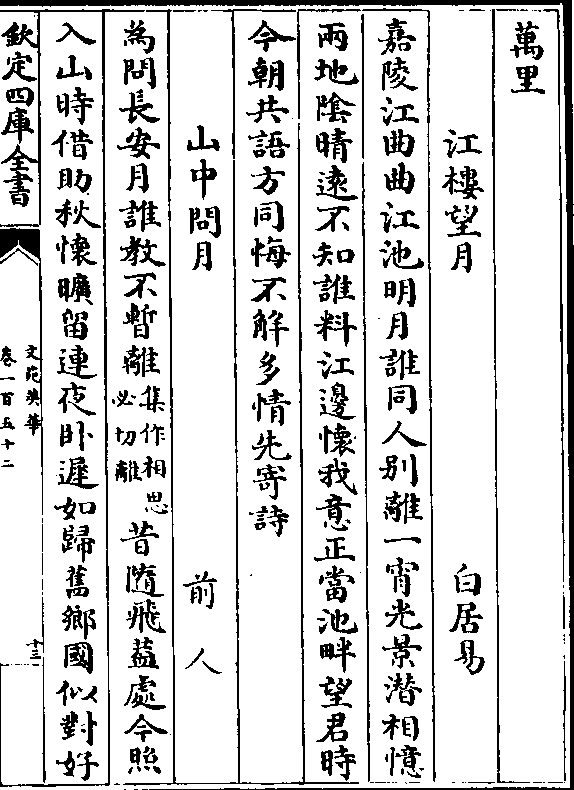 萬里
江樓望月 白居易
嘉陵江曲曲江池明月誰同人别離一宵光景潜相憶
兩地陰晴逺不知誰料江邊懐我意正當池畔望君時
今朝共語方同悔不解多情先寄詩
山中問月 前人
為問長安月誰教不暫離集作相思必切離昔隨飛葢處今照
入山時借助秋懐曠留連夜卧遲如歸舊鄉國似對好
欽定四庫全書
文苑英華
卷一百五十二
十三